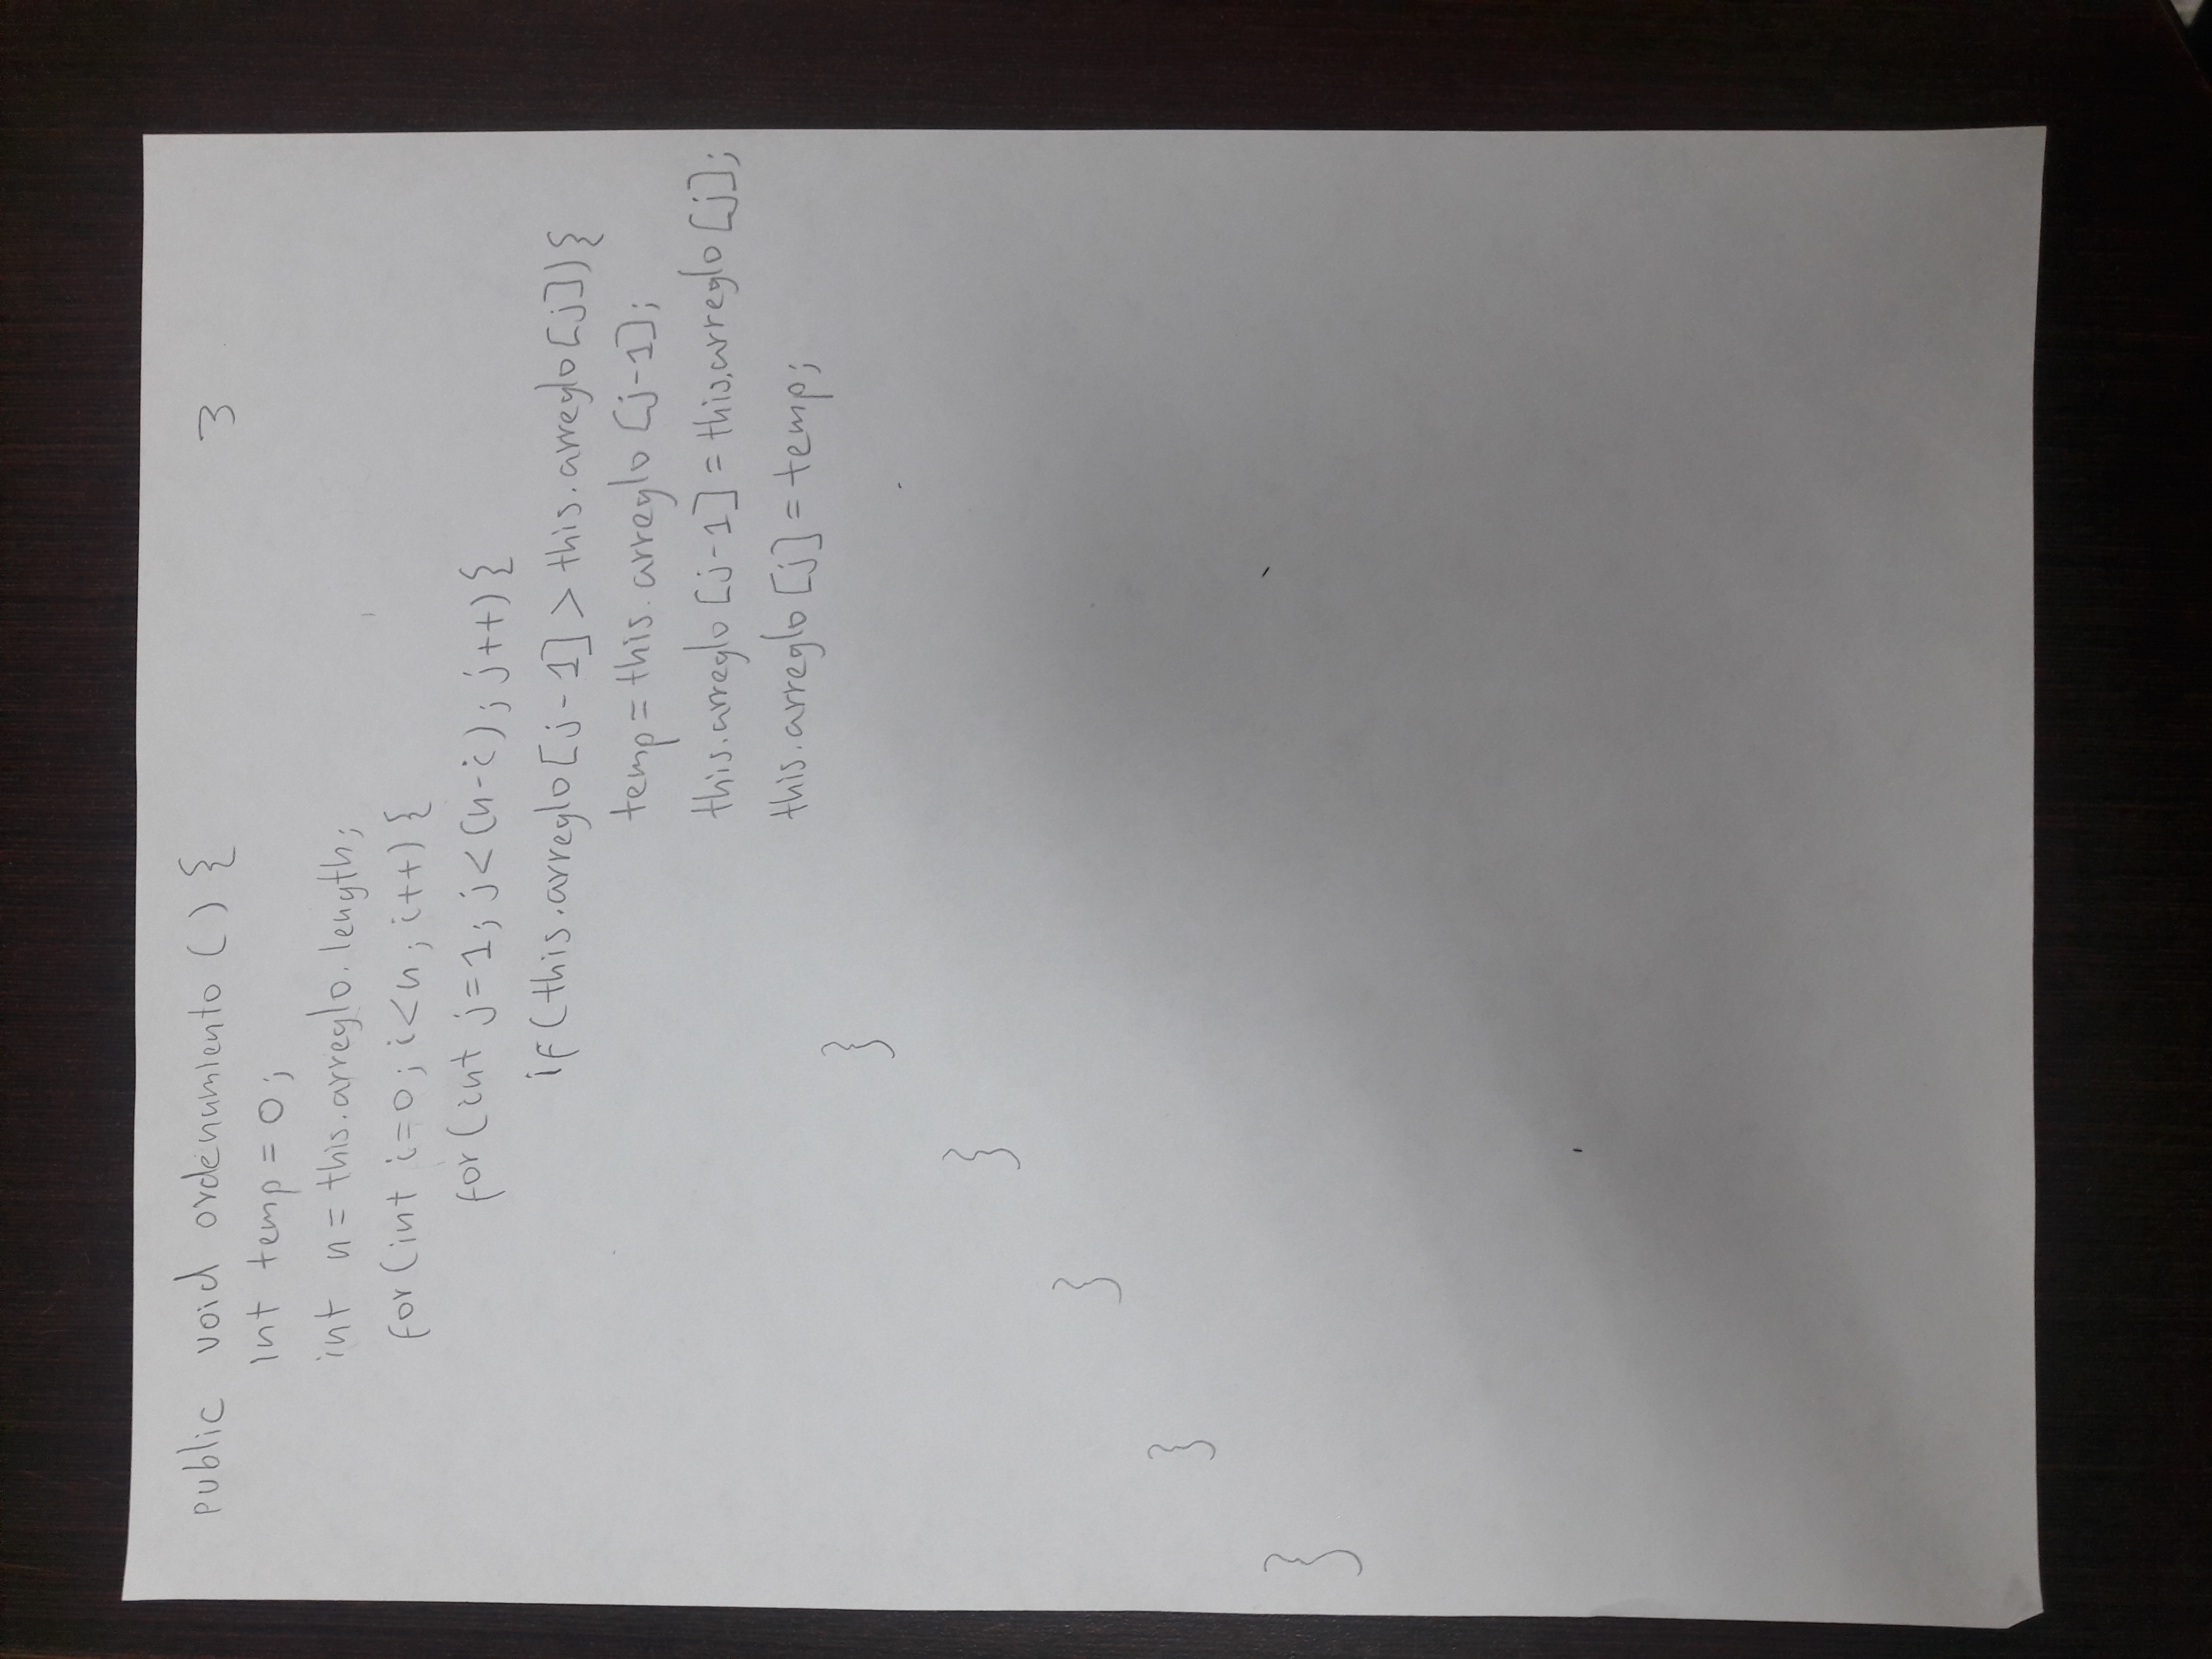 public void ordenamiento () { 3
int temp = 0;
int n = this.arreglo.length;
for (int i=0; i<n; i++) {
for (int j=1; j<(n-i); j++) {
if (this.arreglo [j-1] > this.arreglo [j]) {
temp = this.arreglo [j-1];
this.arreglo [j-1] = this.arreglo [j];
this.arreglo [j] = temp;
}
}
}
}
}